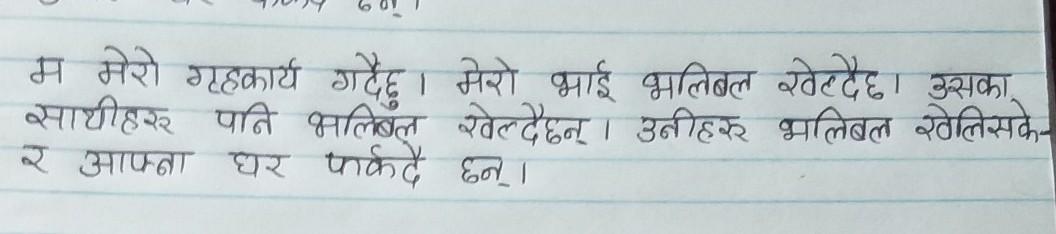 म मेरो गृहकार्य गर्दैछु। मेरो भाई भलिबल खेल्दैछ। उसका
साथीहरू पनि भलिबल खेल्दैछन्। उनीहरू भलिबल खेलिसके-
र आफ्ना घर फर्कदै छन्।